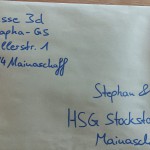 sse 3d
apha-GS
llerstr. 1
4 Mainaschaff
Stephan &
HSG Stocksta
Mainasch